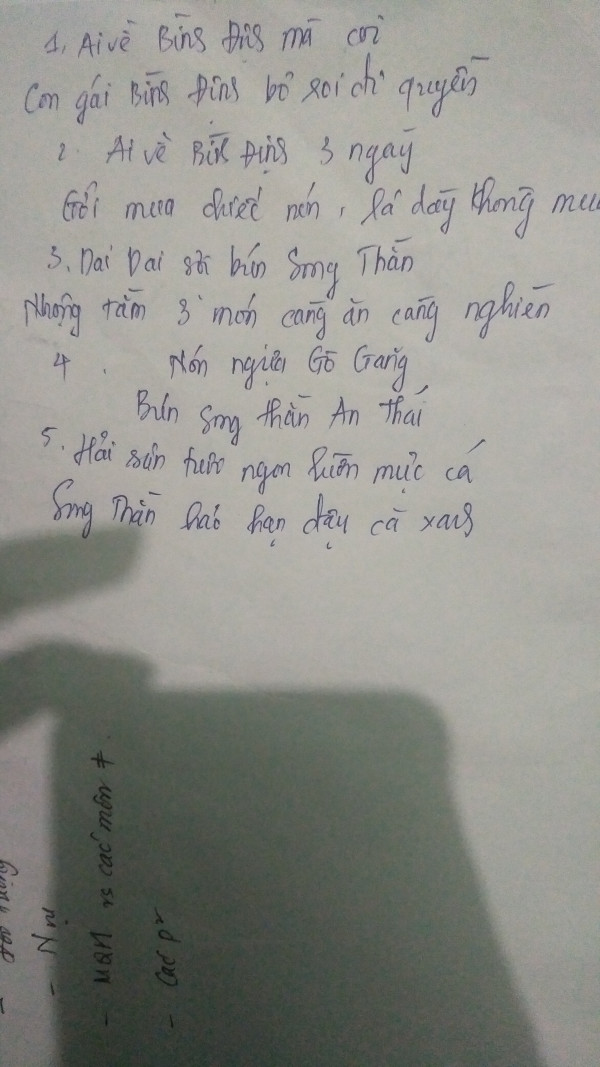 1, Ai về Bình Định mà coi
Con gái Bình Định bỏ roi đi quyền
2. Ai về Bình Định 3 ngày
Gởi mua chiếc nón, lá dày không mua
3. Dai Dai sợi bún Song Thằn
Nhộng tằm 3 món càng ăn càng nghiền
4. Nón ngựa Gò Găng
Bún Song thằn An Thái
5. Hải sản tươi ngon luôn mực cá
Song Thằn hảo hạn đậu cà xanh
- MQN vs các món ≠.
- Các p²